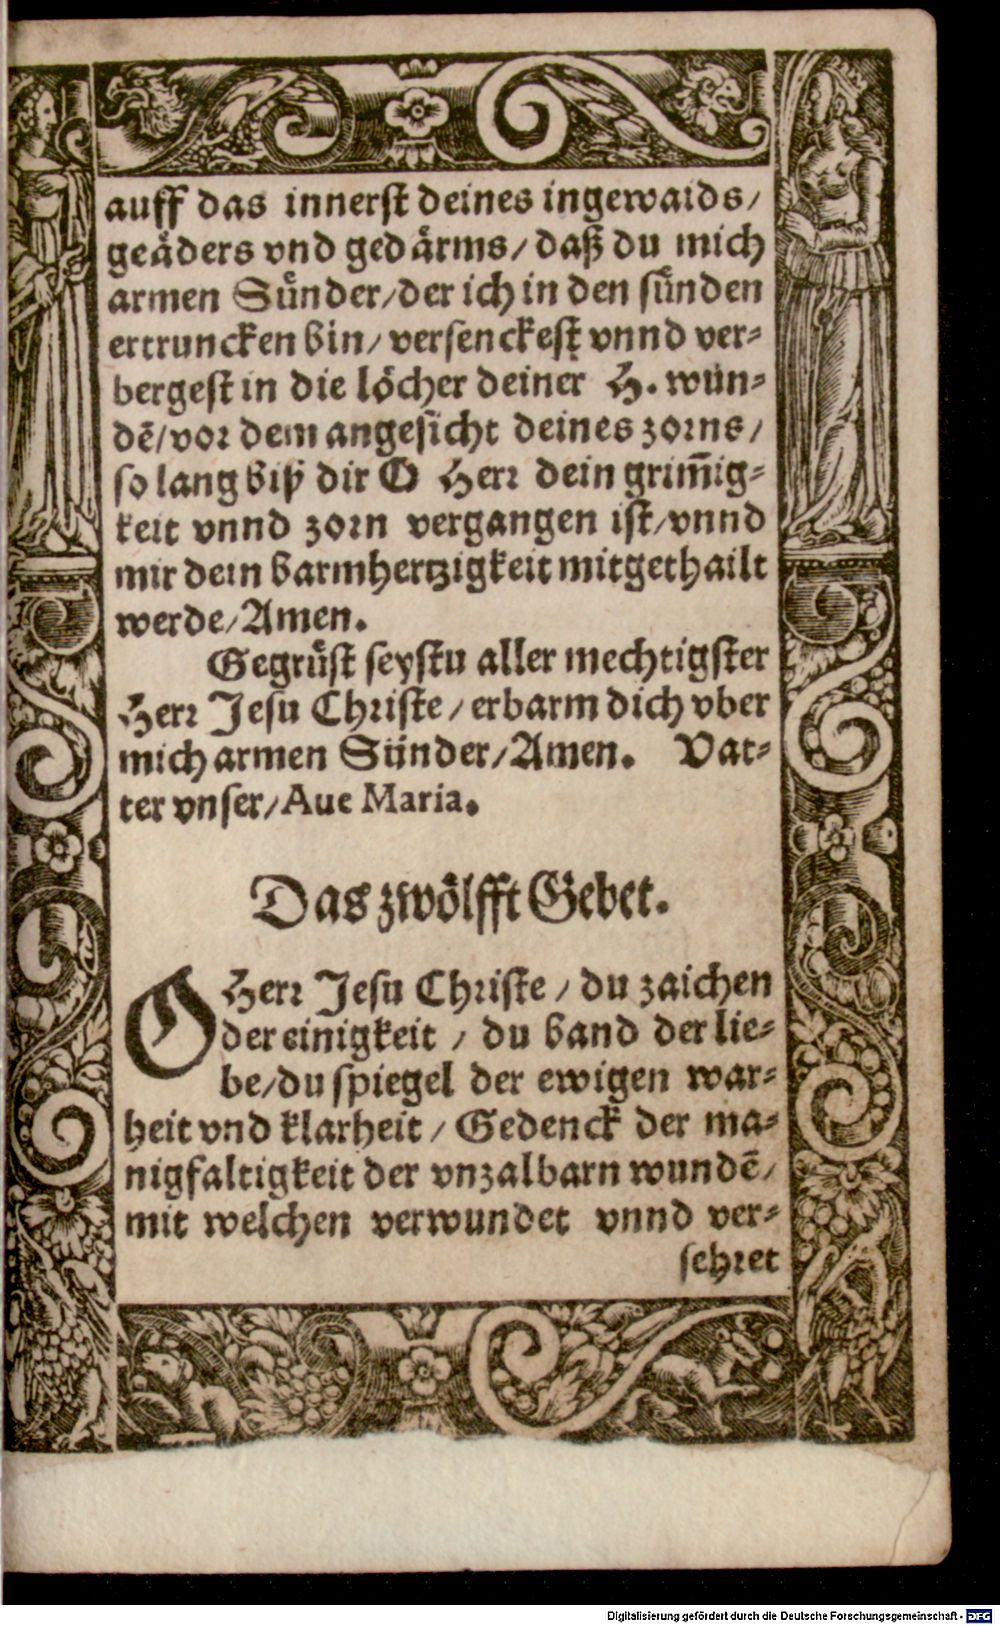 auff das innerst deines ingewaids/
geåders vnd gedårms/ daß du mich
armen Sünder/der ich in den sünden
ertruncken bin/ versenckest vnnd ver-
bergest in die löcher deiner H. wun-
dē/vor dem angesicht deines zorns/
so lang biß dir O Herr dein grim̄ig-
keit vnnd zorn vergangen ist/vnnd
mir dein barmhertzigkeit mitgethailt
werde/Amen.
Gegrüst seystu aller mechtigster
Herr Jesu Christe/erbarm dich vber
mich armen Sünder/Amen. Vat-
ter vnser/Aue Maria.
Das zwölfft Gebet.
O Herr Jesu Christe/ du zaichen
der einigkeit/ du band der lie-
be/du spiegel der ewigen war-
heit vnd klarheit/ Gedenck der ma-
nigfaltigkeit der vnzalbarn wundē/
mit welchen verwundet vnnd ver-
sehret
Digitalisierung gefördert durch die Deutsche Forschungsgemeinschaft - DFG